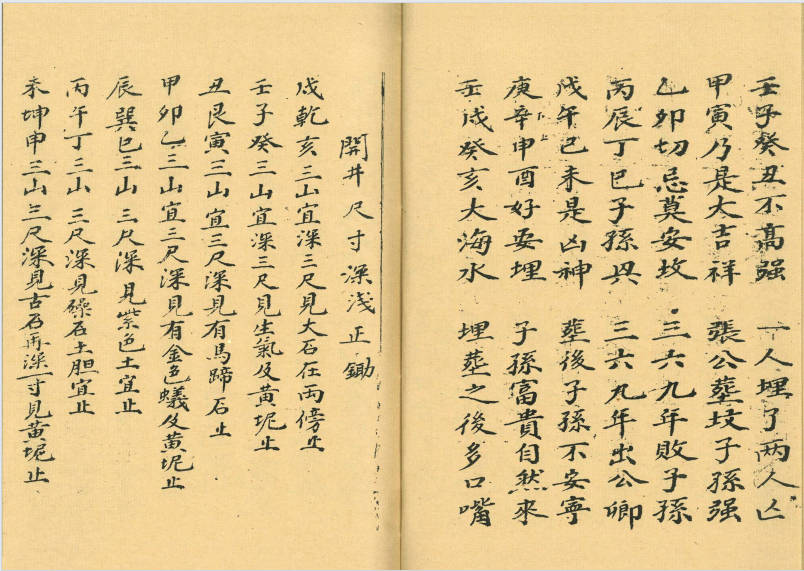 壬子癸丑不高强　一人埋了两人亡
甲寅乃是大吉祥　張公塟坟子孫强
乙卯切忌莫安坟　三六九年敗子孫
丙辰丁巳子孫兴　三六九年出公卿
戊午己未是凶神　塟後子孫不安寧
庚辛申酉好要埋　子孫富貴自然來
壬戌癸亥大海水　埋塟之後多口嘴
開井尺寸深浅正鋤
戌乾亥三山宜深三尺見大石在兩傍止
壬子癸三山宜深三尺見生氣及黄坭止
丑艮寅三山宜三尺深見有馬蹄石止
甲卯乙三山宜三尺深見有金色蟻及黄坭止
辰巽巳三山三尺深見紫色土宜止
丙午丁三山三尺深見石土胆宜止
未坤申三山三尺深見古石再深一寸見黄坭止